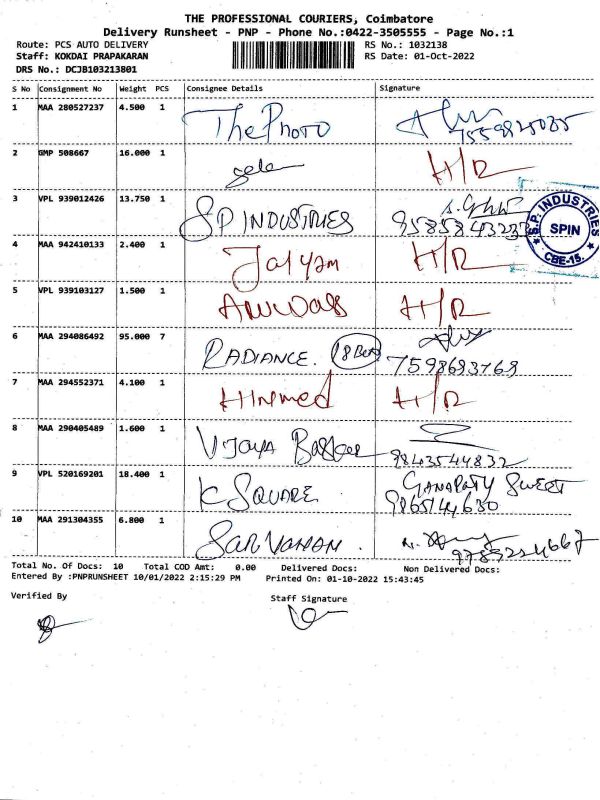 THE PROFESSIONAL COURIERS, Coimbatore
Delivery Runsheet - PNP - Phone No.:0422-3505555 - Page No.:1
Route: PCS AUTO DELIVERY RS No.: 1032138
Staff: KOKDAI PRAPAKARAN RS Date: 01-Oct-2022
DRS No.: DCJB103213801
S No Consignment No Weight PCS Consignee Details Signature
1 MAA 280527237 4.500 1 The Photo
2 GMP 508667 16.000 1 H/R
3 VPL 939012426 13.750 1 SP INDUSTRIES
S.P. INDUSTRIES SPIN CBE-15.
4 MAA 942410133 2.400 1 Jaiyam H/R
5 VPL 939103127 1.500 1 H/R
6 MAA 294086492 95.000 7 RADIANCE. 7598693769
7 MAA 294552371 4.100 1 H/R
8 MAA 290405489 1.600 1 VIJAYA Baskar 9843544832
9 VPL 520169201 18.400 1 K SQUARE GANAPATY SWEET
10 MAA 291304355 6.800 1 SARVANAN.
Total No. Of Docs: 10 Total COD Amt: 0.00 Delivered Docs: Non Delivered Docs:
Entered By :PNPRUNSHEET 10/01/2022 2:15:29 PM Printed On: 01-10-2022 15:43:45
Verified By Staff Signature